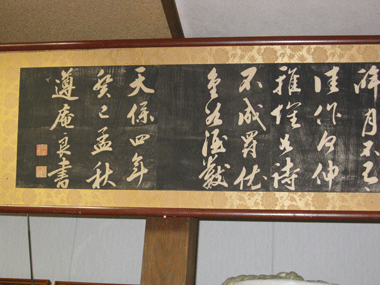 醉月不有
佳作何伸
雅懷如詩
不成罰依
金谷酒數
天保四年
癸巳孟秋
遵庵良書